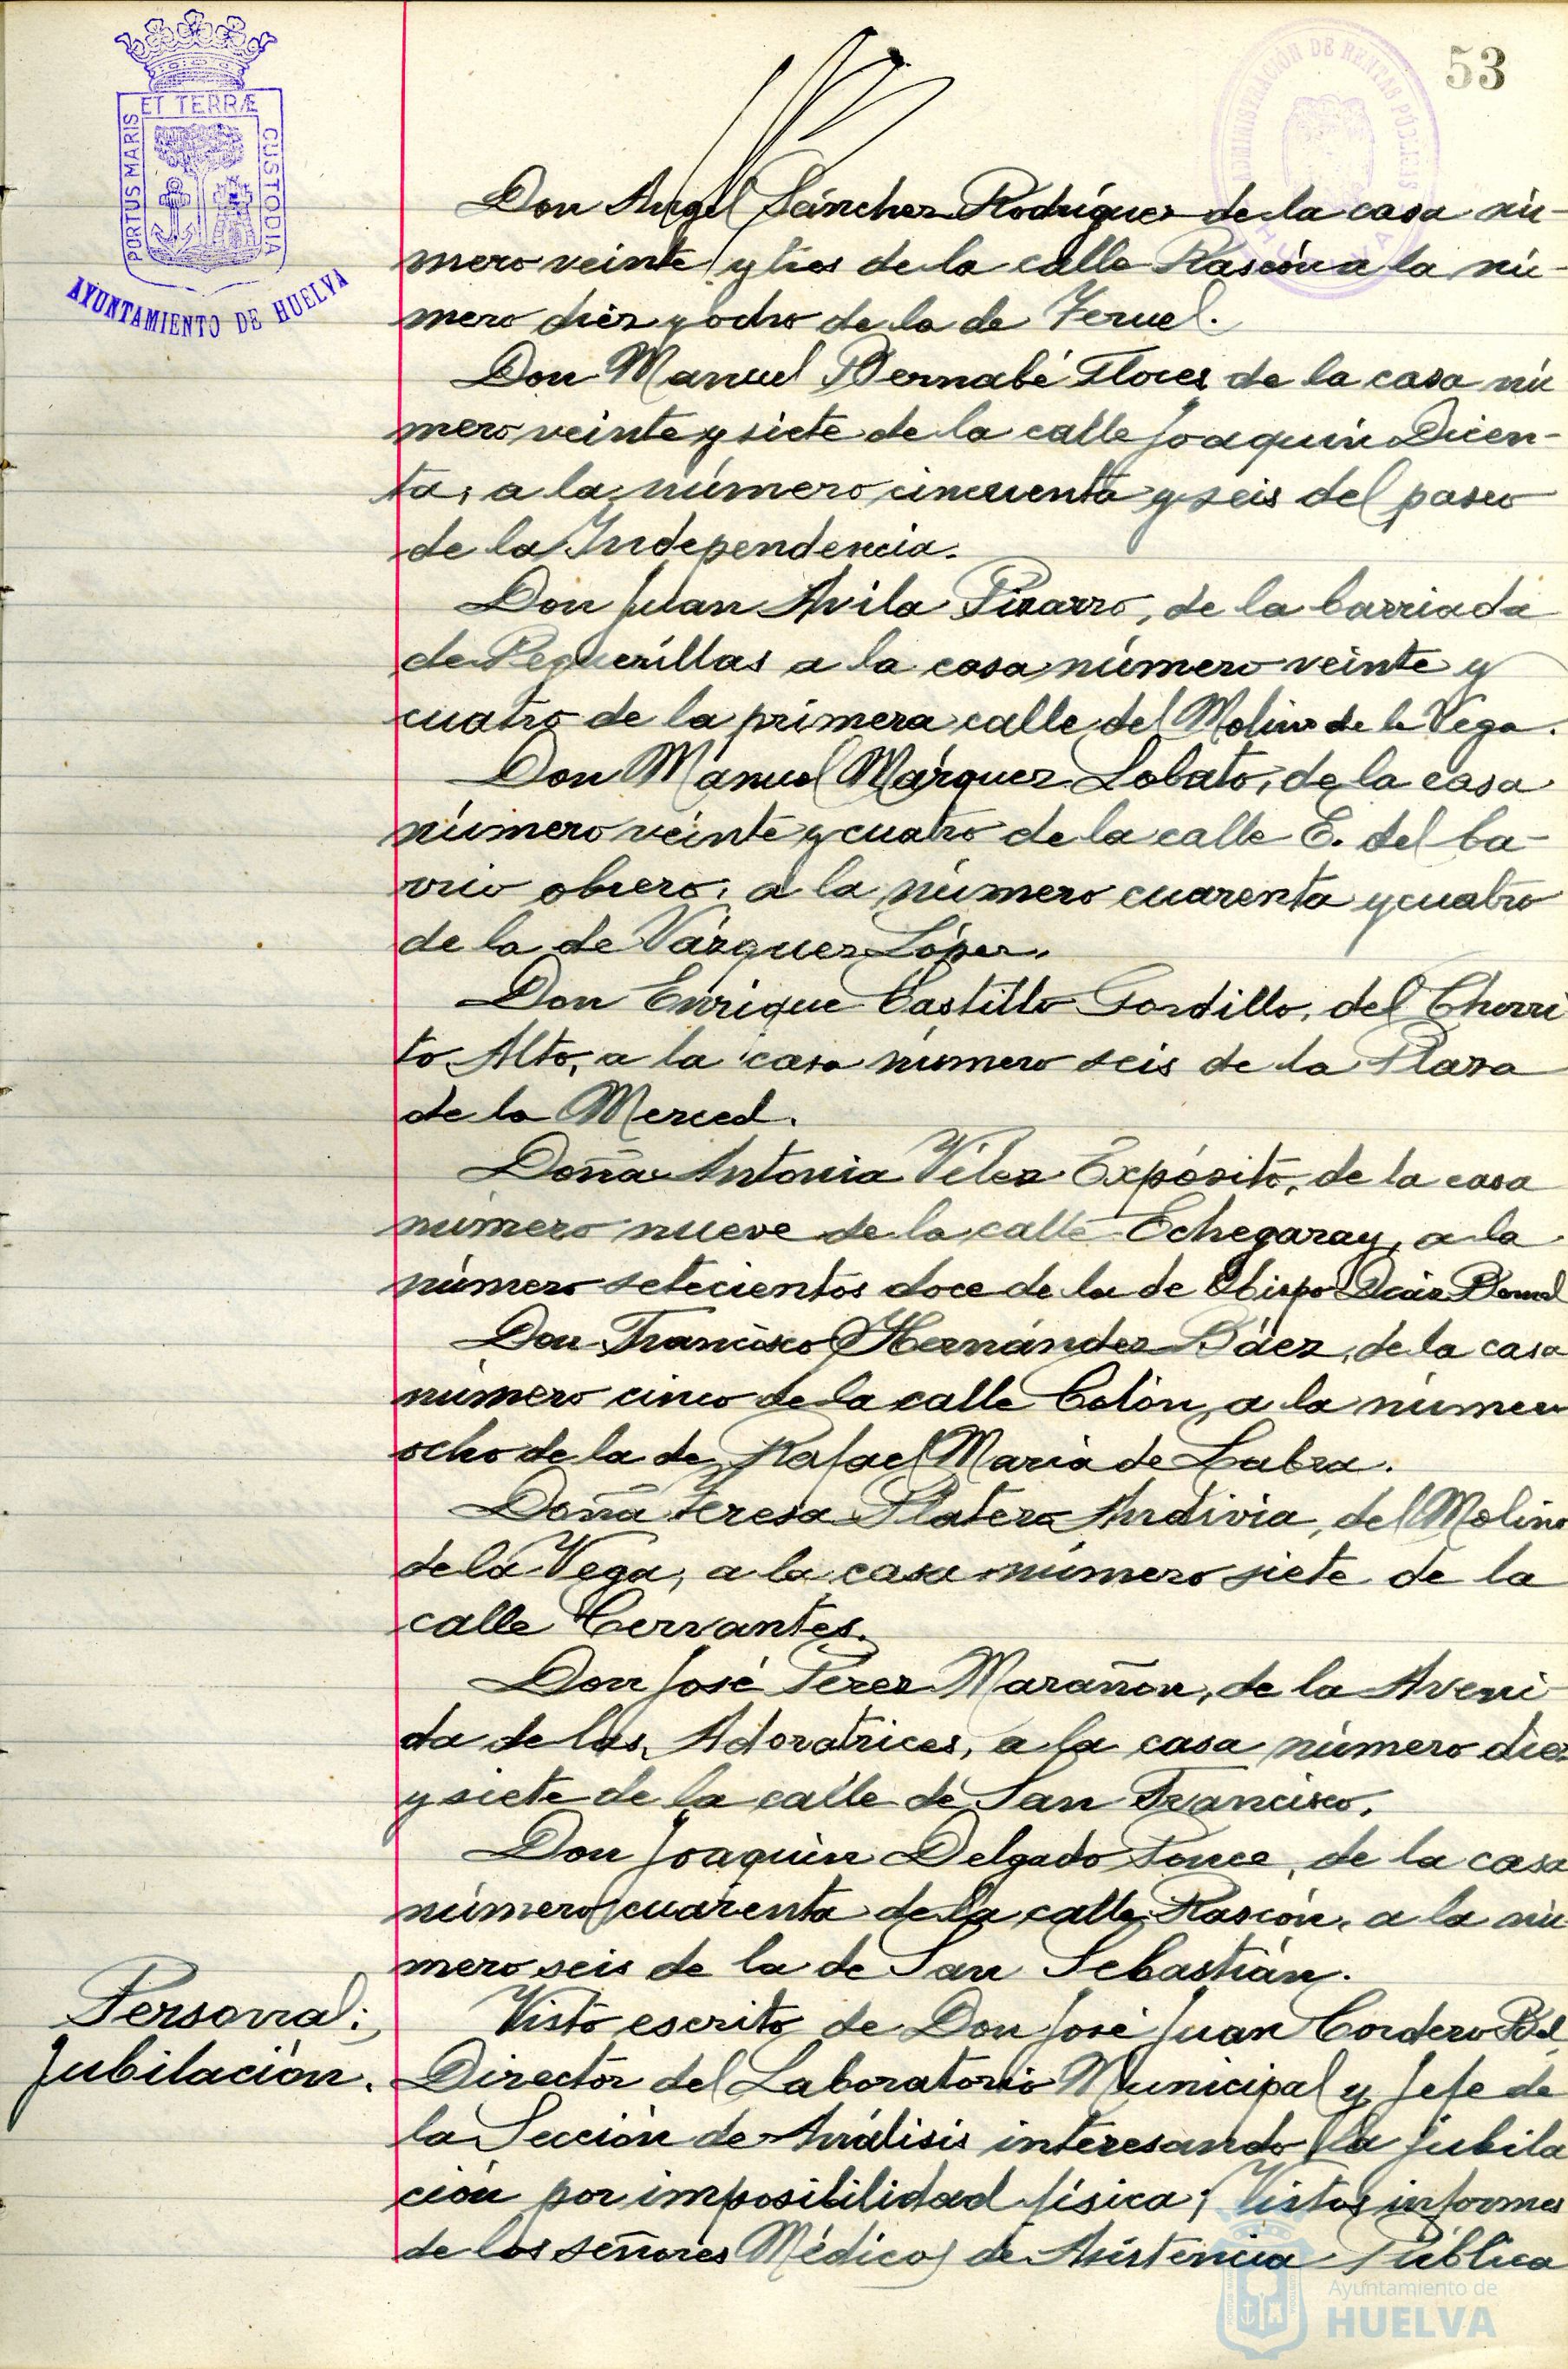 53
ET TERRÆ
PORTUS MARIS
CUSTODIA
AYUNTAMIENTO DE HUELVA
ADMINISTRACIÓN DE RENTAS PÚBLICAS
HUELVA
Don Angel Sánchez Rodríguez de la casa nú-
mero veinte y tres de la calle Rascón a la nú-
mero diez y ocho de la de Teruel.
Don Manuel Bernabé Flores de la casa nú
mero veinte y siete de la calle Joaquín Dicen-
ta, a la número cincuenta y seis del paseo
de la Independencia.
Don Juan Avila Pizarro, de la barriada
de Peguerillas a la casa número veinte y
cuatro de la primera calle del Molino de la Vega.
Don Manuel Márquez Lobato, de la casa
número veinte y cuatro de la calle E. del ba-
rrio obrero, a la número cuarenta y cuatro
de la de Vázquez López.
Don Enrique Castillo Gordillo, del Chorri
to Alto, a la casa número seis de la Plaza
de la Merced.
Doña Antonia Vélez Expósito, de la casa
número nueve de la calle Echegaray, a la
número setecientos doce de la de Obispo Díaz Bernal
Don Francisco Hernández Báez, de la casa
número cinco de la calle Colón, a la número
ocho de la de Rafael María de Labra.
Doña Teresa Platero Andivia, del Molino
de la Vega, a la casa número siete de la
calle Cervantes.
Don José Perez Marañon, de la Aveni
da de las Adoratrices, a la casa número diez
y siete de la calle de San Francisco.
Don Joaquín Delgado Ponce, de la casa
número cuarenta de la calle Rascón, a la nú
mero seis de la de San Sebastián.
Personal:
Jubilación.
Visto escrito de Don José Juan Cordero Bel,
Director del Laboratorio Municipal y Jefe de
la Sección de Análisis interesando la jubila
ción por imposibilidad física; Vistos informes
de los señores Médicos de Asistencia Pública
Ayuntamiento de
HUELVA